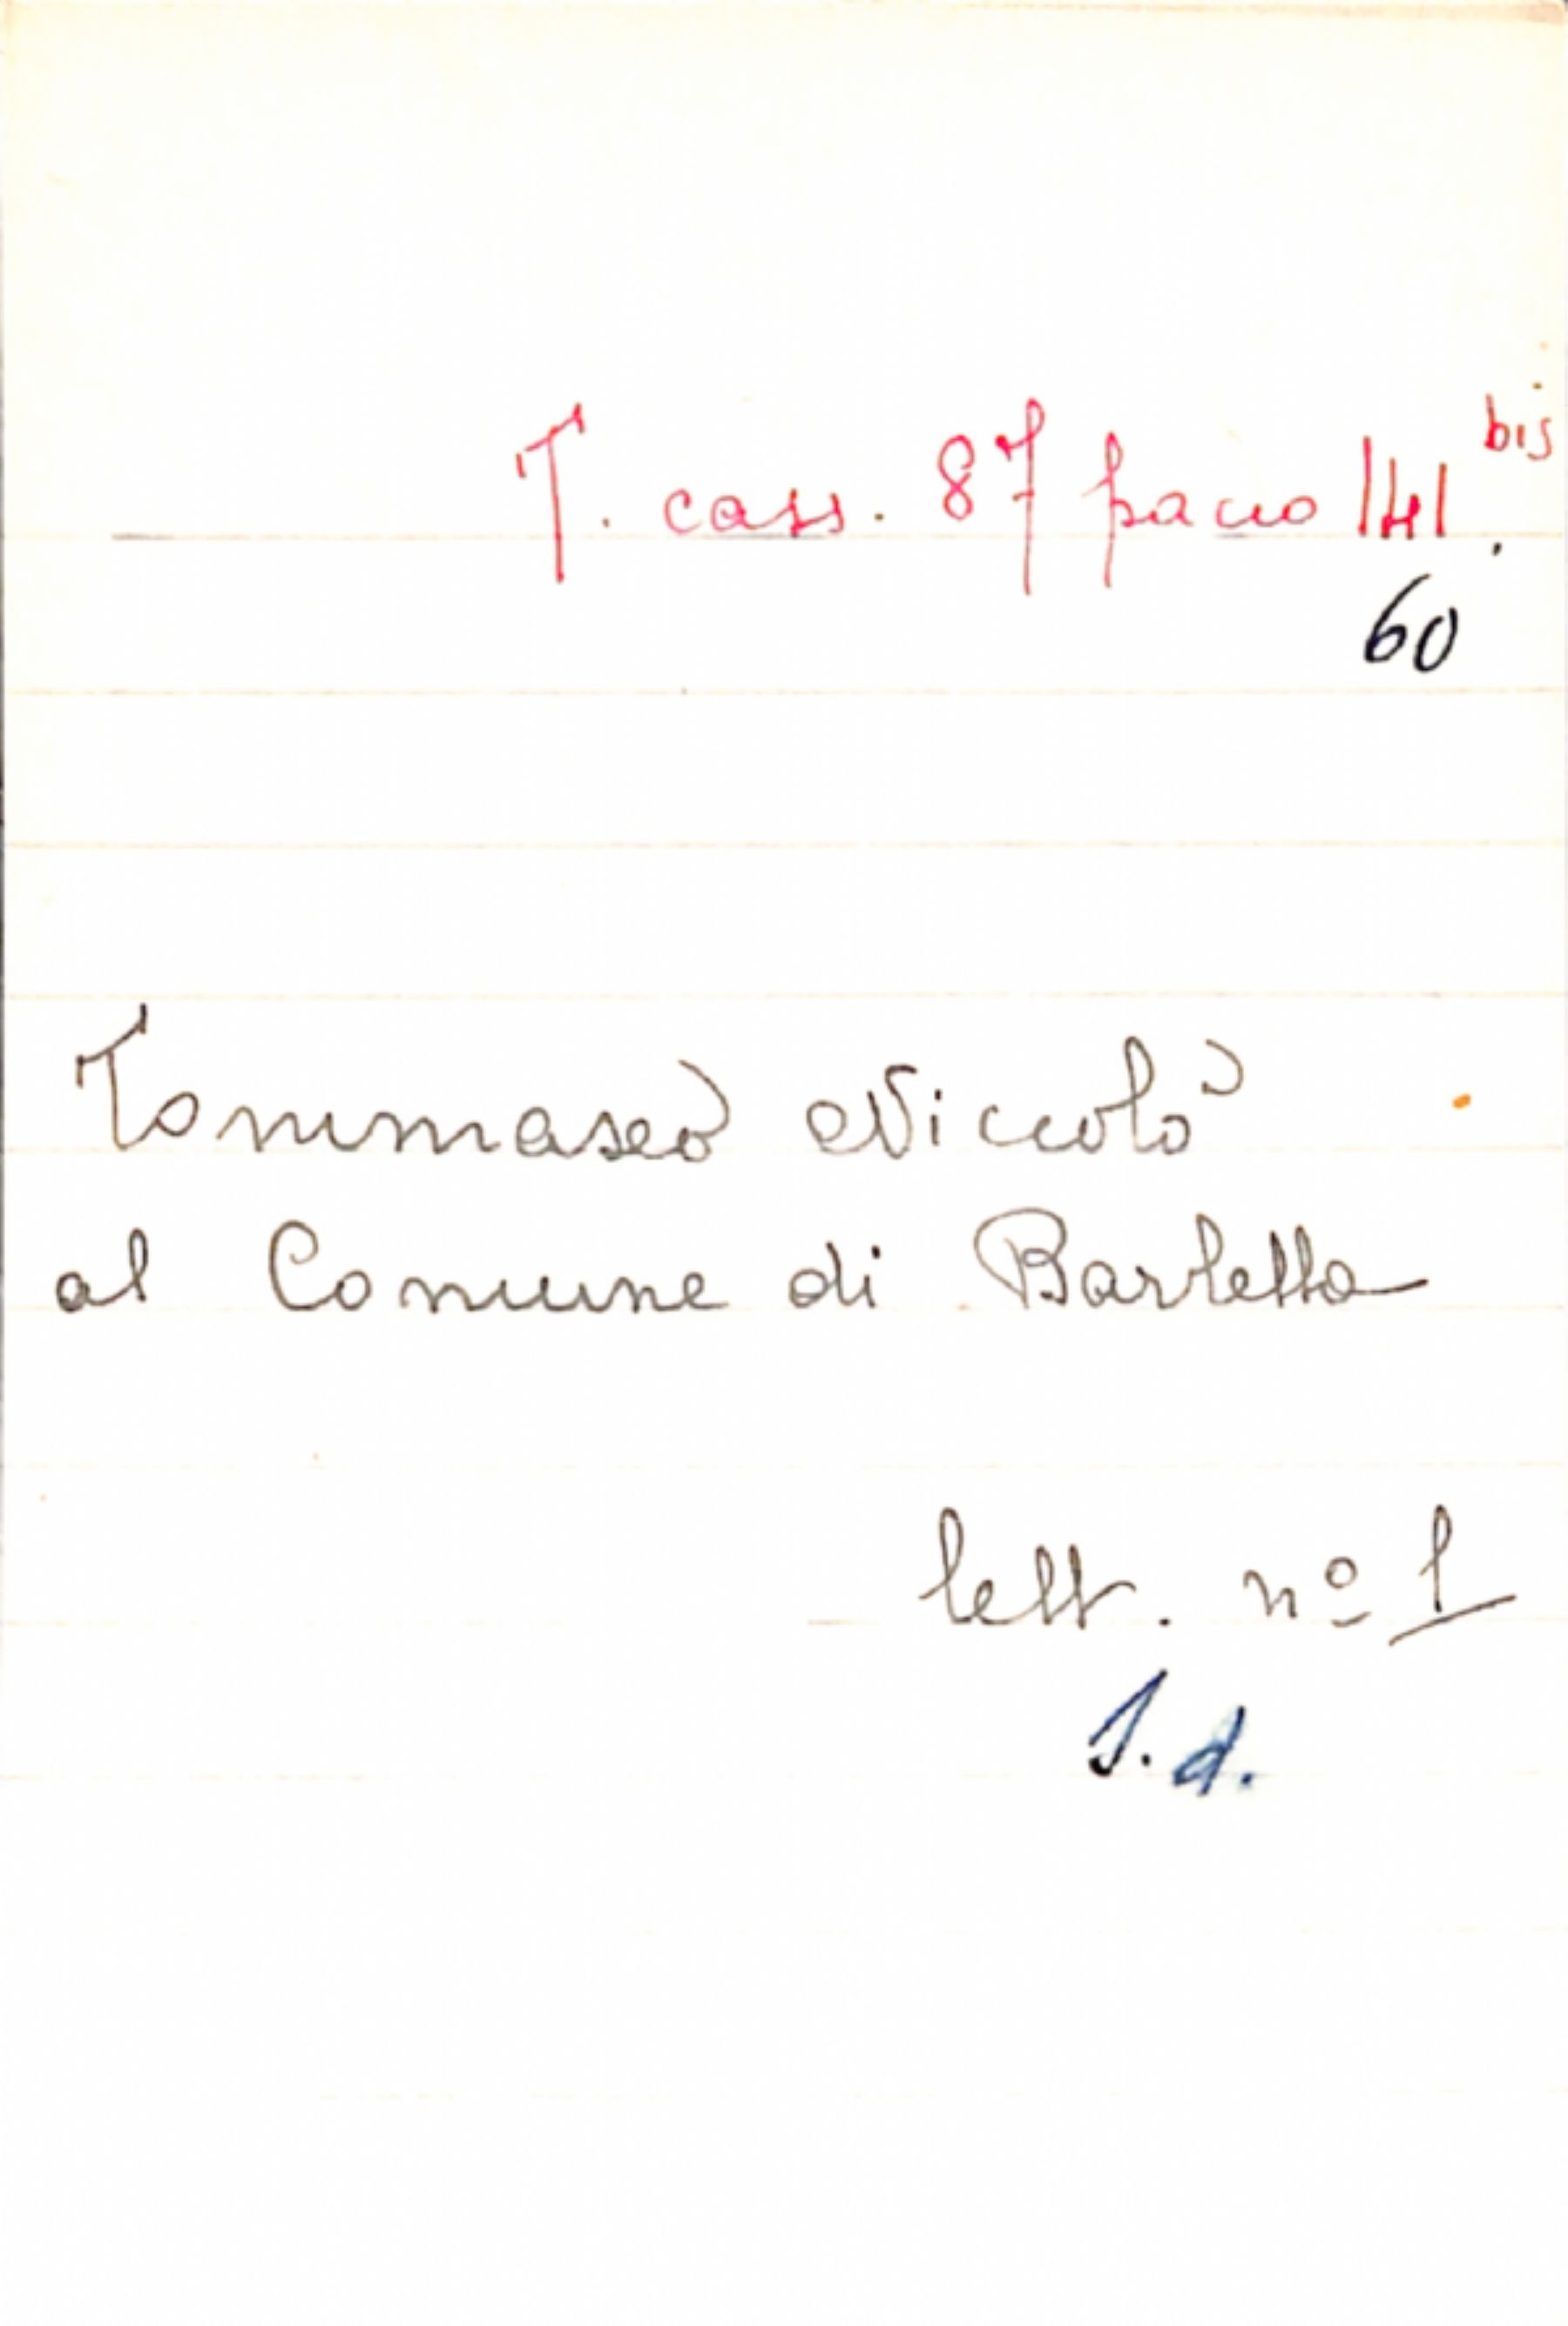 T. cass. 87 pacco 141 bis.
60
Tommaseo Niccolò
al Comune di Barletta
lett. nº 1
S.d.